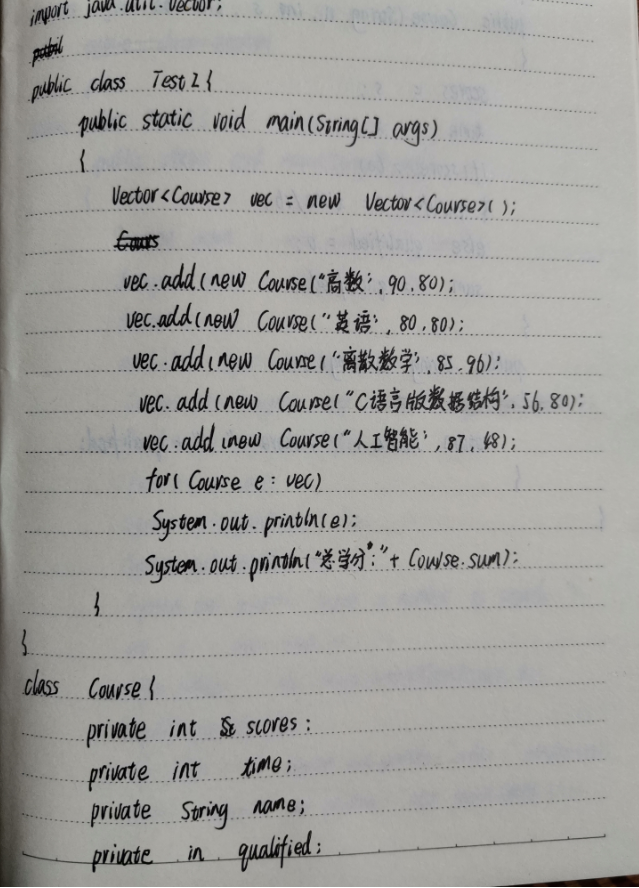 import java.util.Vector;
public class Test2{
public static void main(String[] args)
{
Vector<Course> vec = new Vector<Course>();
vec.add(new Course("高数",90,80);
vec.add(new Course("英语",80,80);
vec.add(new Course("离散数学",85,96);
vec.add(new Course("C语言版数据结构",56,80);
vec.add(new Course("人工智能",87,48);
for(Course e : vec)
System.out.println(e);
System.out.println("总学分":"+ Course.sum);
}
}
class Course{
private int scores;
private int time;
private String name;
private in qualified;